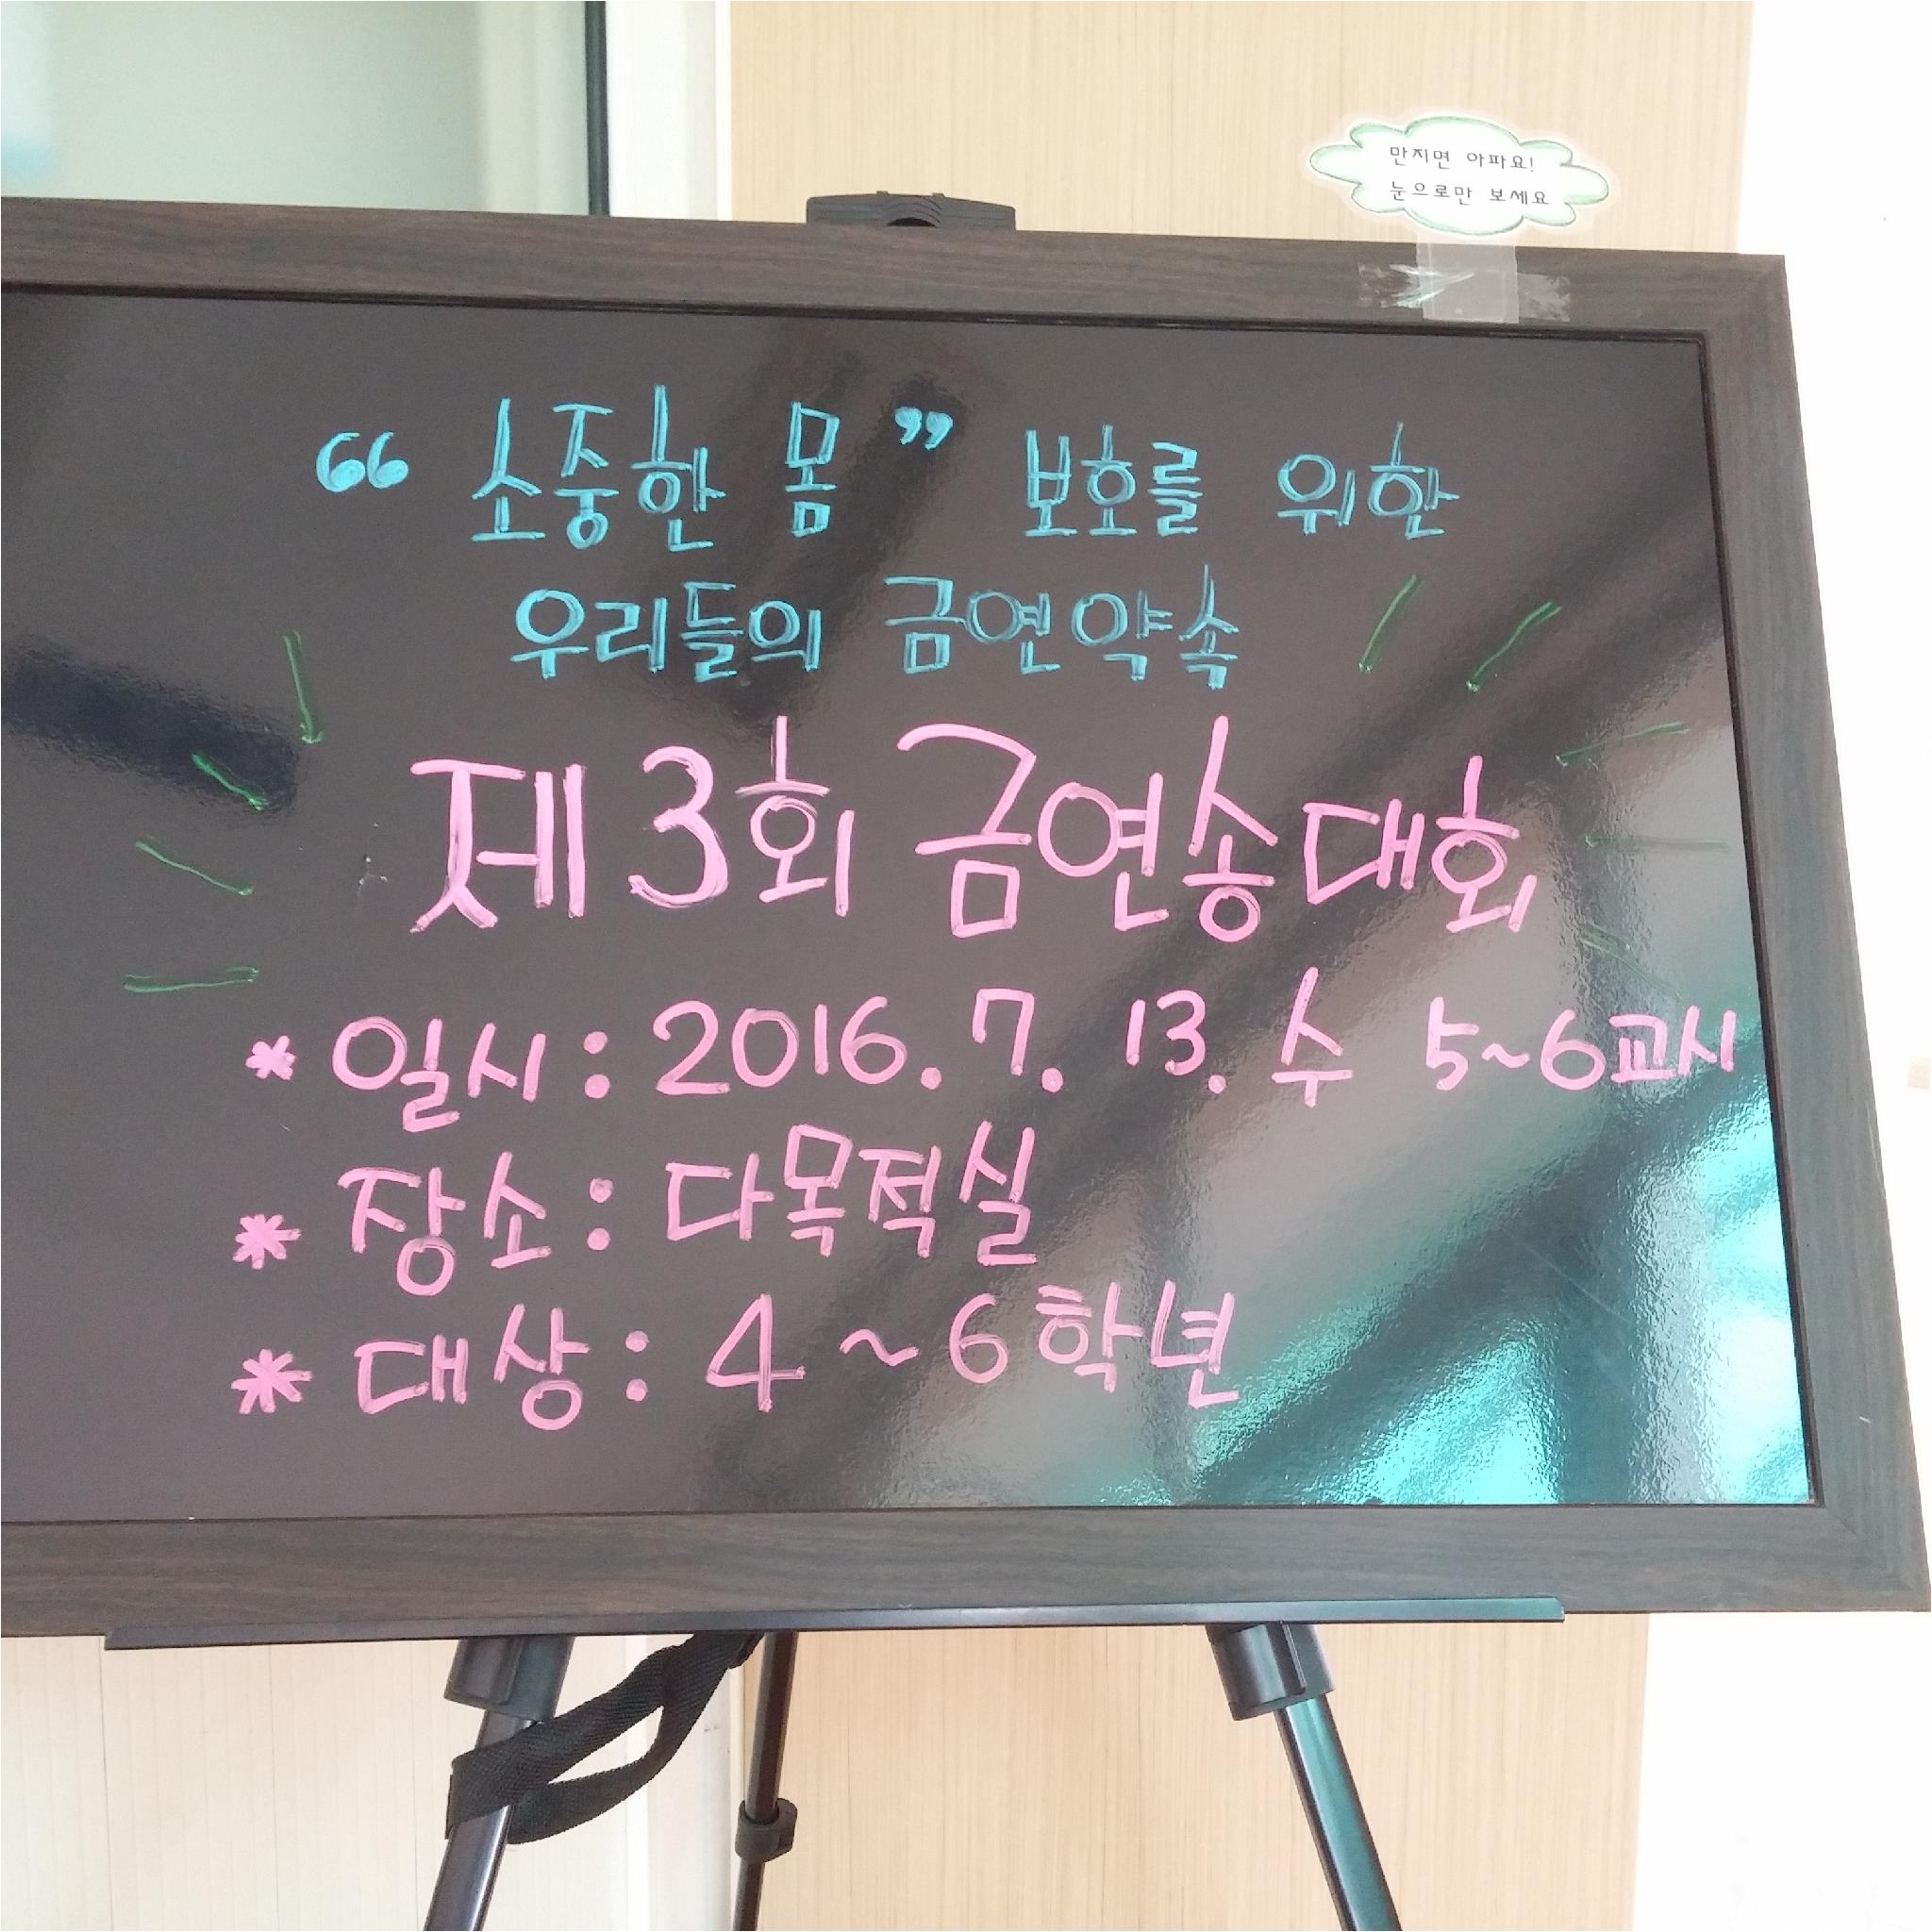 만지면 아파요!
눈으로만 보세요
“소중한 몸” 보호를 위한
우리들의 금연약속
제3회 금연송대회
* 일시 : 2016. 7. 13. 수 5~6교시
* 장소 : 다목적실
* 대상 : 4~6학년